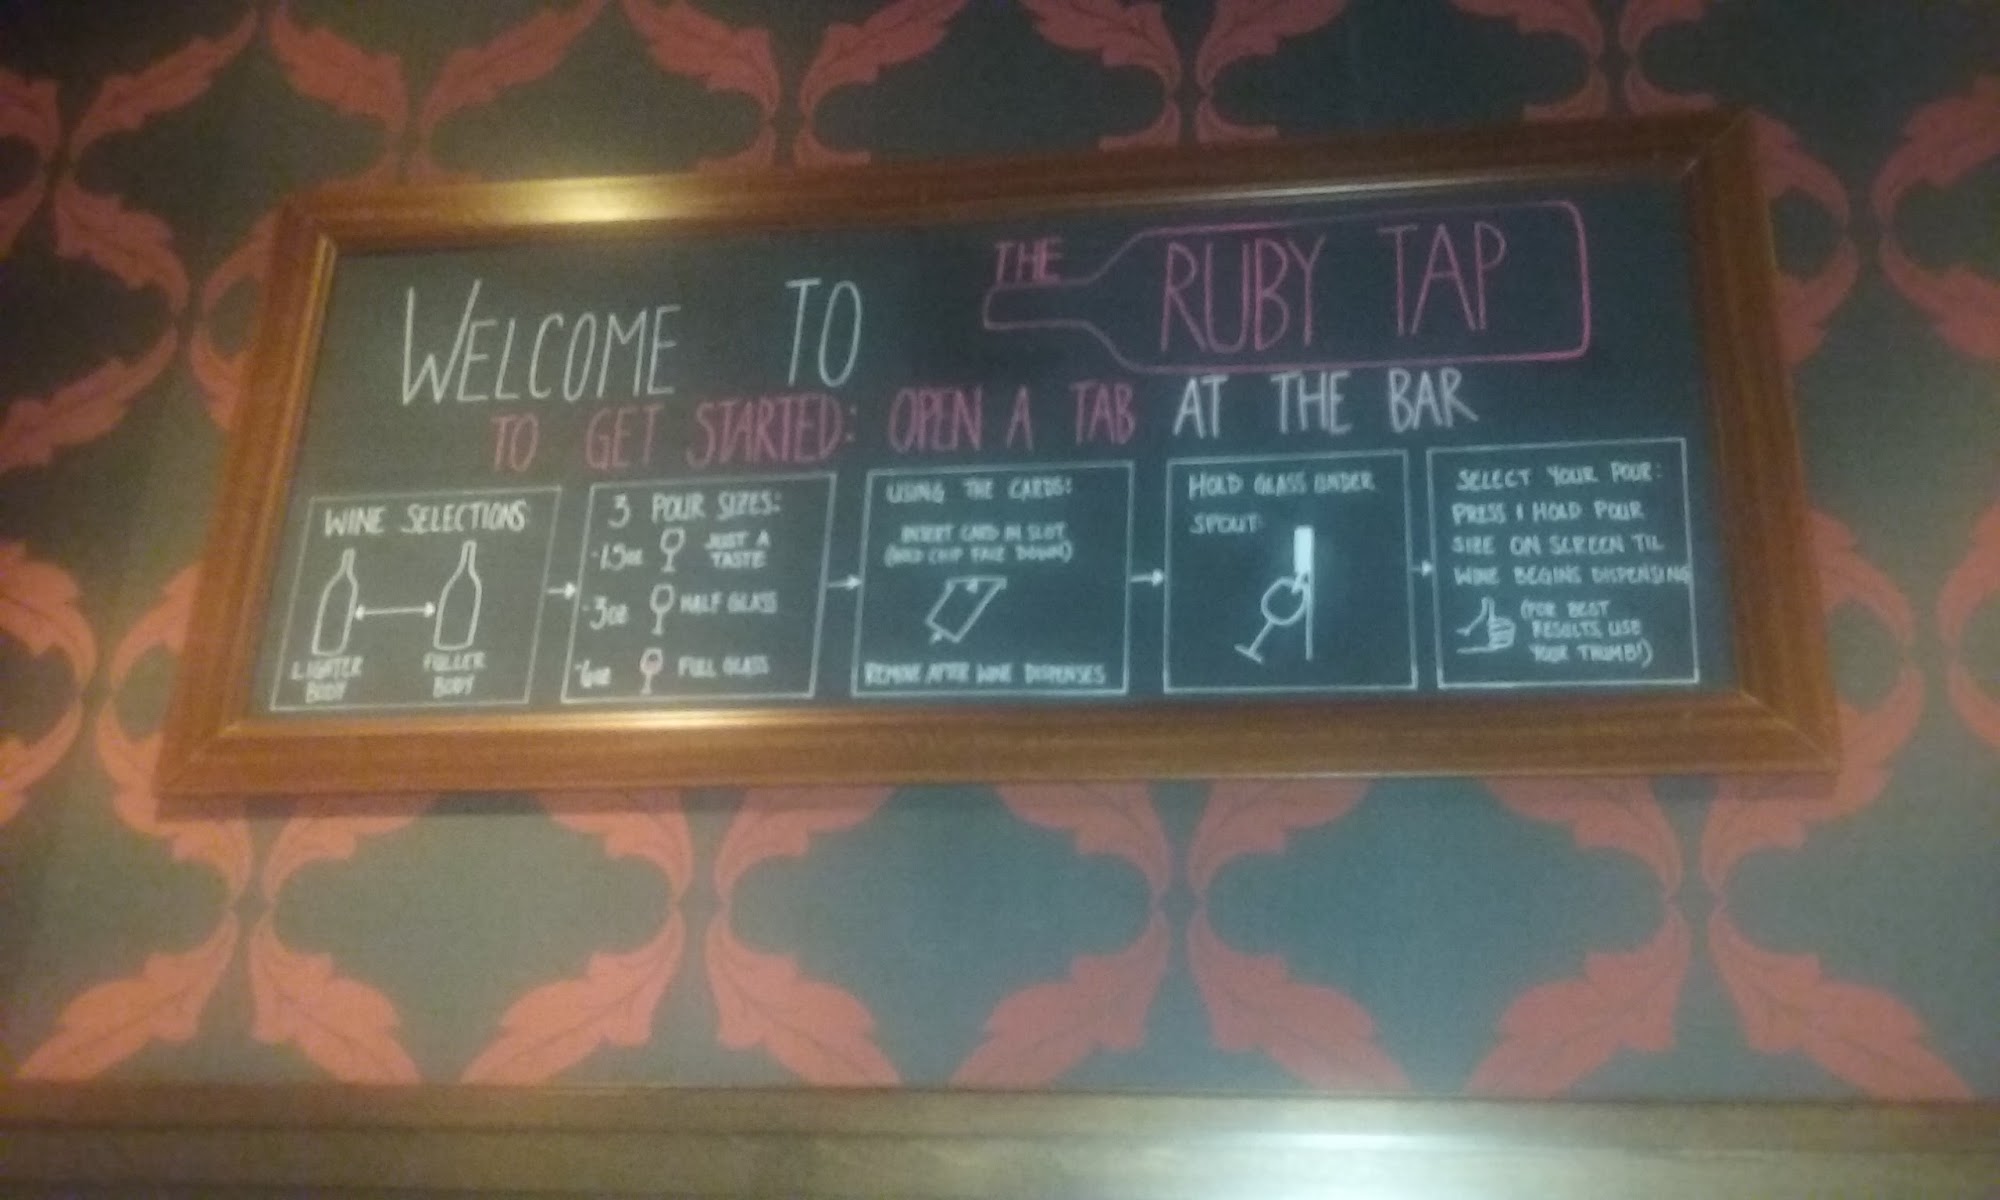 WELCOME TO
THE RUBY TAP
TO GET STARTED: OPEN A TAB AT THE BAR
WINE SELECTIONS
LIGHTER
BODY
FULLER
BODY
3 POUR SIZES:
-1.5oz JUST A
TASTE
-3oz HALF GLASS
-6oz FULL GLASS
USING THE CARDS:
INSERT CARD IN SLOT
(GOLD CHIP FACE DOWN)
REMOVE AFTER WINE DISPENSES
HOLD GLASS UNDER
SPOUT
SELECT YOUR POUR:
PRESS & HOLD POUR
SIZE ON SCREEN TIL
WINE BEGINS DISPENSING
(FOR BEST
RESULTS, USE
YOUR THUMB!)